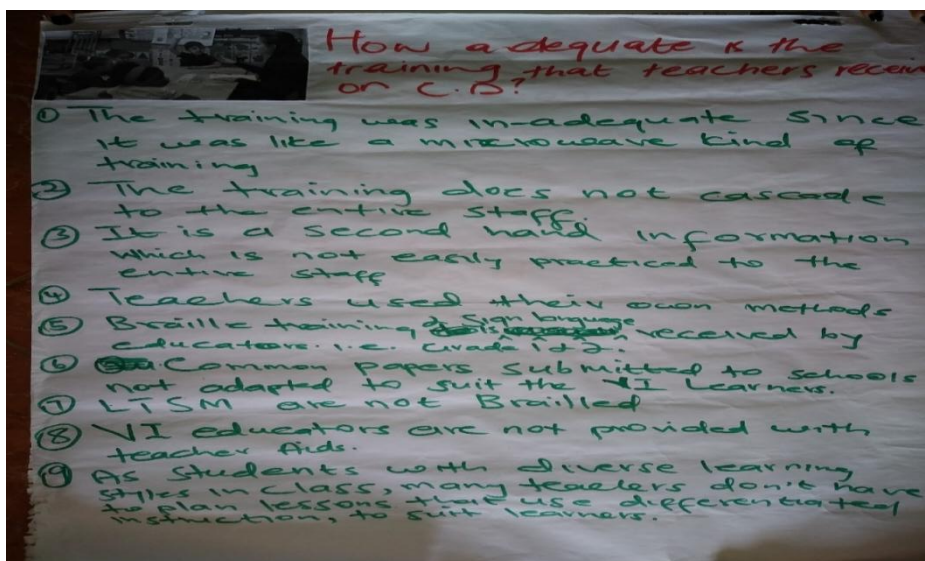 How adequate is the
training that teachers receive
on C.D?
① The training was in-adequate since
it was like a microwave kind of
training
② The training does not cascade
to the entire staff.
③ It is a second hand information
which is not easily practiced to the
entire staff
④ Teachers used their own methods
⑤ Braille training & Sign language received by
educators. i.e. Grade 1+2.
⑥ Common papers submitted to schools
not adapted to suit the VI Learners.
⑦ LTSM are not Brailled
⑧ VI educators are not provided with
teacher Aids.
⑨ As students with diverse learning
styles in class, many teachers don't have
to plan lessons that use differentiated
instruction, to suit learners.